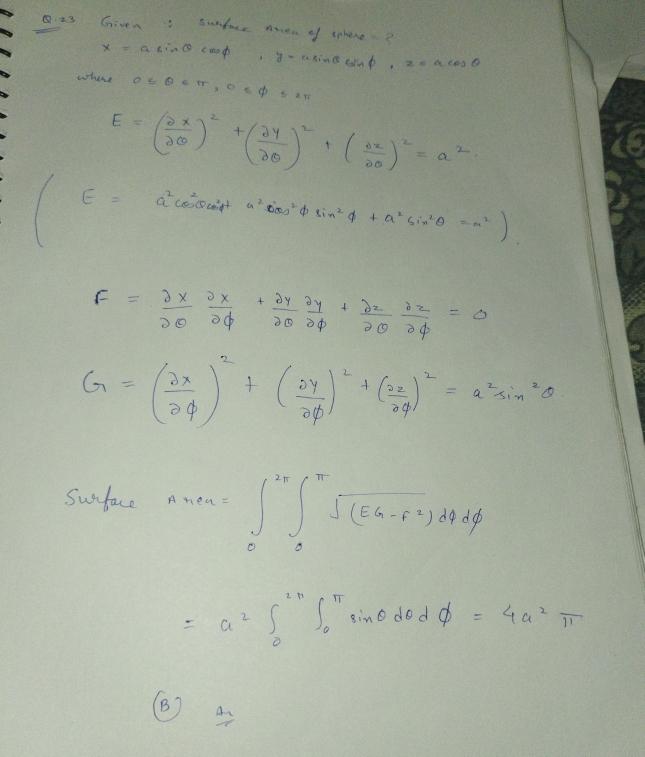 Q.23 Given : Surface Area of sphere = ?
x = a sinθ cosϕ , y = a sinθ sinϕ , z = a cosθ
where 0 ≤ θ ≤ π , 0 ≤ ϕ ≤ 2π
E = (∂x/∂θ)² + (∂y/∂θ)² + (∂z/∂θ)² = a².
( E = a² cos²θ cos²ϕ + a² cos² ϕ sin² ϕ + a² sin² θ = a² ).
F = ∂x/∂θ ∂x/∂ϕ + ∂y/∂θ ∂y/∂ϕ + ∂z/∂θ ∂z/∂ϕ = 0
G = (∂x/∂ϕ)² + (∂y/∂ϕ)² + (∂z/∂ϕ)² = a² sin² θ.
Surface Area = ∫₀^2π ∫₀^π √(EG - F²) dϕ dϕ
= a² ∫₀^2π ∫₀^π sinθ dθ d ϕ = 4a² π
(B) An